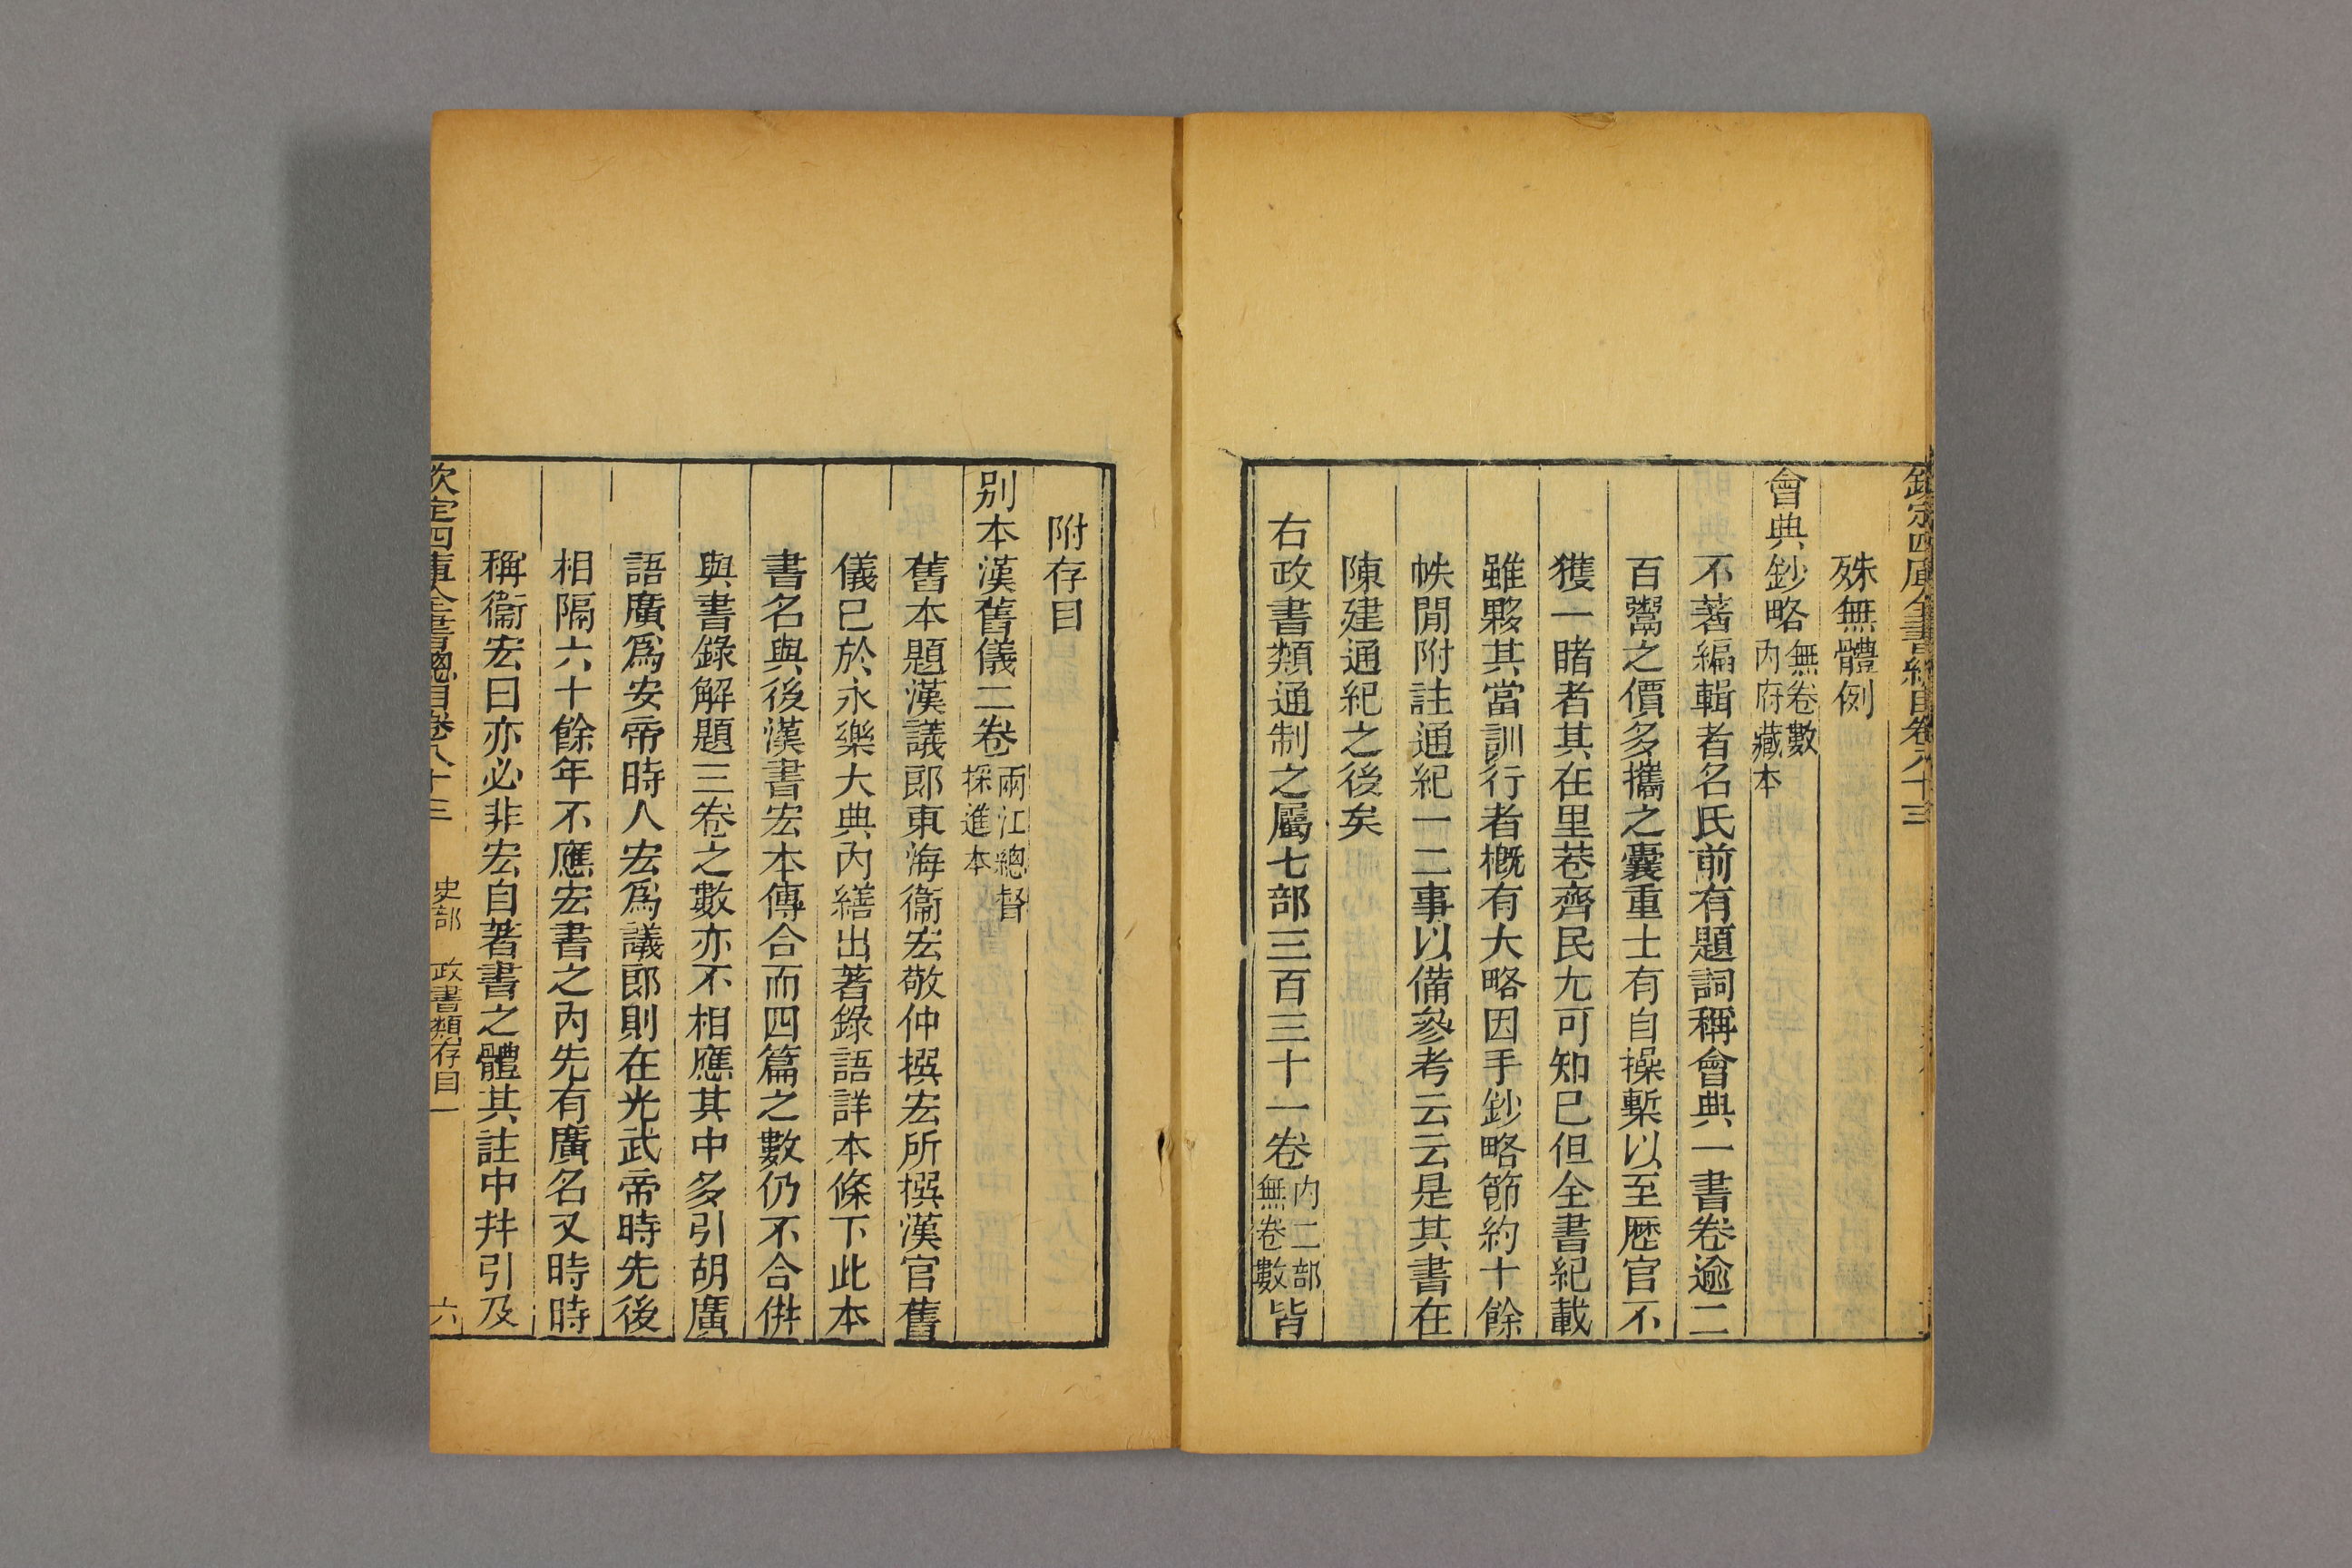 殊無體例
會典鈔略無卷數內府藏本
不著編輯者名氏前有題詞稱會典一書卷逾二
百鬻之價多攜之囊重士有自操槧以至歷官不
獲一睹者其在里巷齊民尢可知已但全書紀載
雖夥其當訓行者槪有大略因手鈔略節約十餘
帙閒附註通紀一二事以備參考云云是其書在
陳建通紀之後矣
右政書類通制之屬七部三百三十一卷內二部無卷數皆
附存目
別本漢舊儀二卷兩江總督採進本
舊本題漢議郎東海衞宏敬仲撰宏所撰漢官舊
儀已於永樂大典內繕出著錄語詳本條下此本
書名與後漢書宏本傳合而四篇之數仍不合倂
與書錄解題三卷之數亦不相應其中多引胡廣
語廣爲安帝時人宏爲議郎則在光武帝時先後
相隔六十餘年不應宏書之內先有廣名又時時
稱衞宏曰亦必非宏自著書之體其註中幷引及
欽定四庫全書總目卷八十三 史部 政書類存目一 六